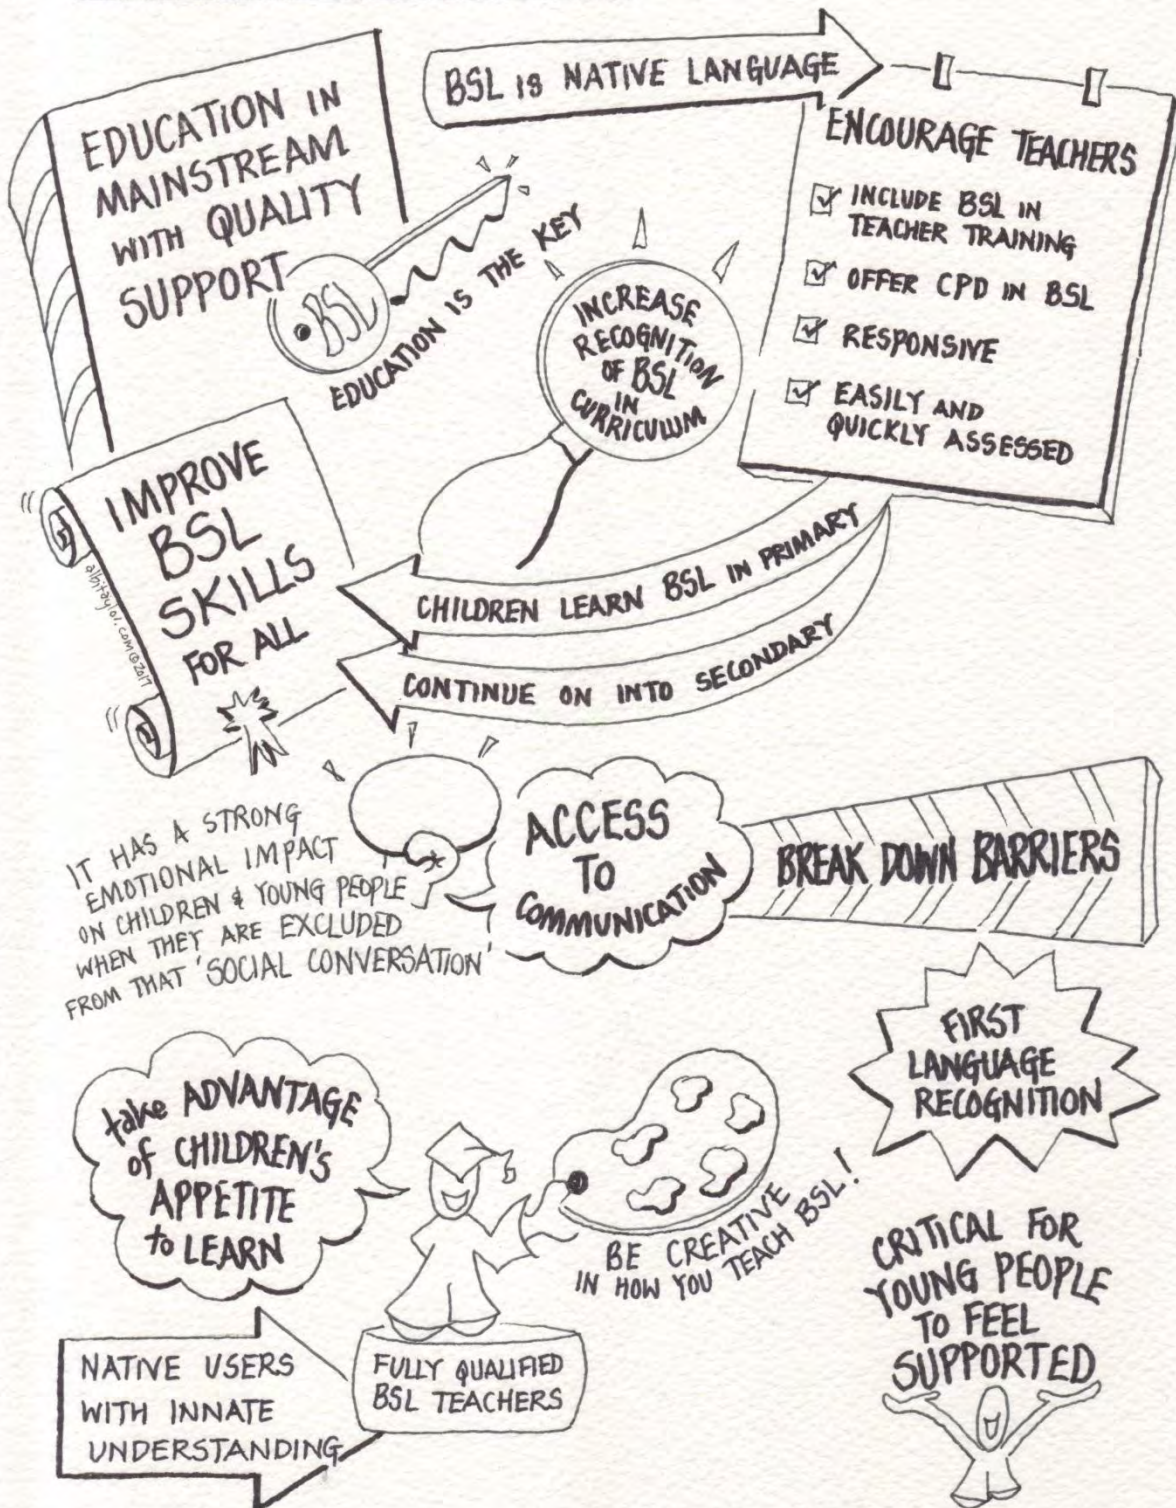 EDUCATION IN
MAINSTREAM
WITH QUALITY
SUPPORT
BSL
EDUCATION IS THE KEY
BSL IS NATIVE LANGUAGE
ENCOURAGE TEACHERS
INCLUDE BSL IN
TEACHER TRAINING
OFFER CPD IN BSL
RESPONSIVE
EASILY AND
QUICKLY ASSESSED
INCREASE
RECOGNITION
OF BSL
IN
CURRICULUM
IMPROVE
BSL
SKILLS
FOR ALL
albitaylor.com©2017
CHILDREN LEARN BSL IN PRIMARY
CONTINUE ON INTO SECONDARY
IT HAS A STRONG
EMOTIONAL IMPACT
ON CHILDREN & YOUNG PEOPLE
WHEN THEY ARE EXCLUDED
FROM THAT 'SOCIAL CONVERSATION'
ACCESS
TO
COMMUNICATION
BREAK DOWN BARRIERS
FIRST
LANGUAGE
RECOGNITION
take ADVANTAGE
of CHILDREN'S
APPETITE
to LEARN
BE CREATIVE
IN HOW YOU TEACH BSL!
CRITICAL FOR
YOUNG PEOPLE
TO FEEL
SUPPORTED
NATIVE USERS
WITH INNATE
UNDERSTANDING
FULLY QUALIFIED
BSL TEACHERS